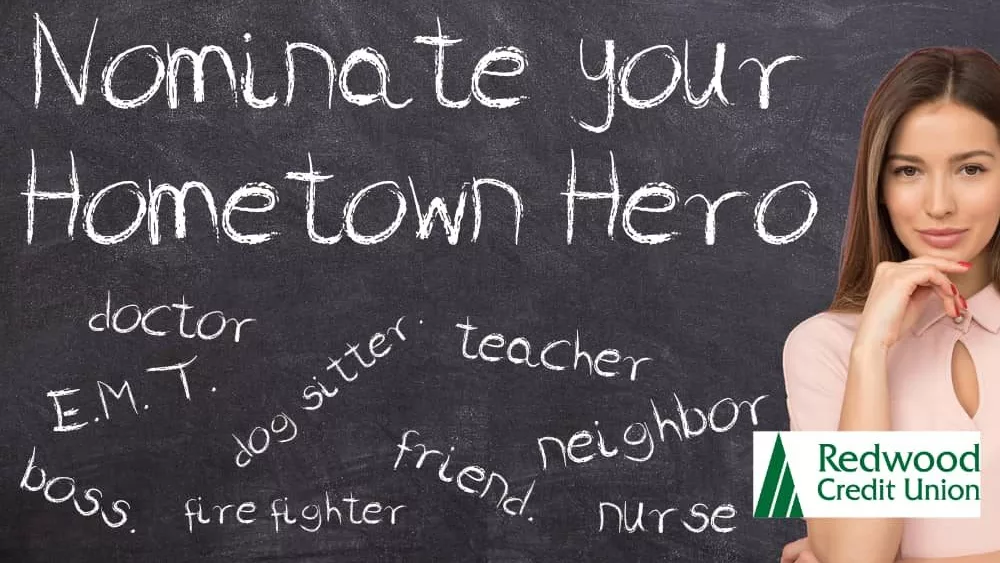 Nominate your
Hometown Hero
doctor
E.M.T.
dog sitter.
teacher
boss.
fire fighter
friend.
neighbor
nurse
Redwood
Credit Union